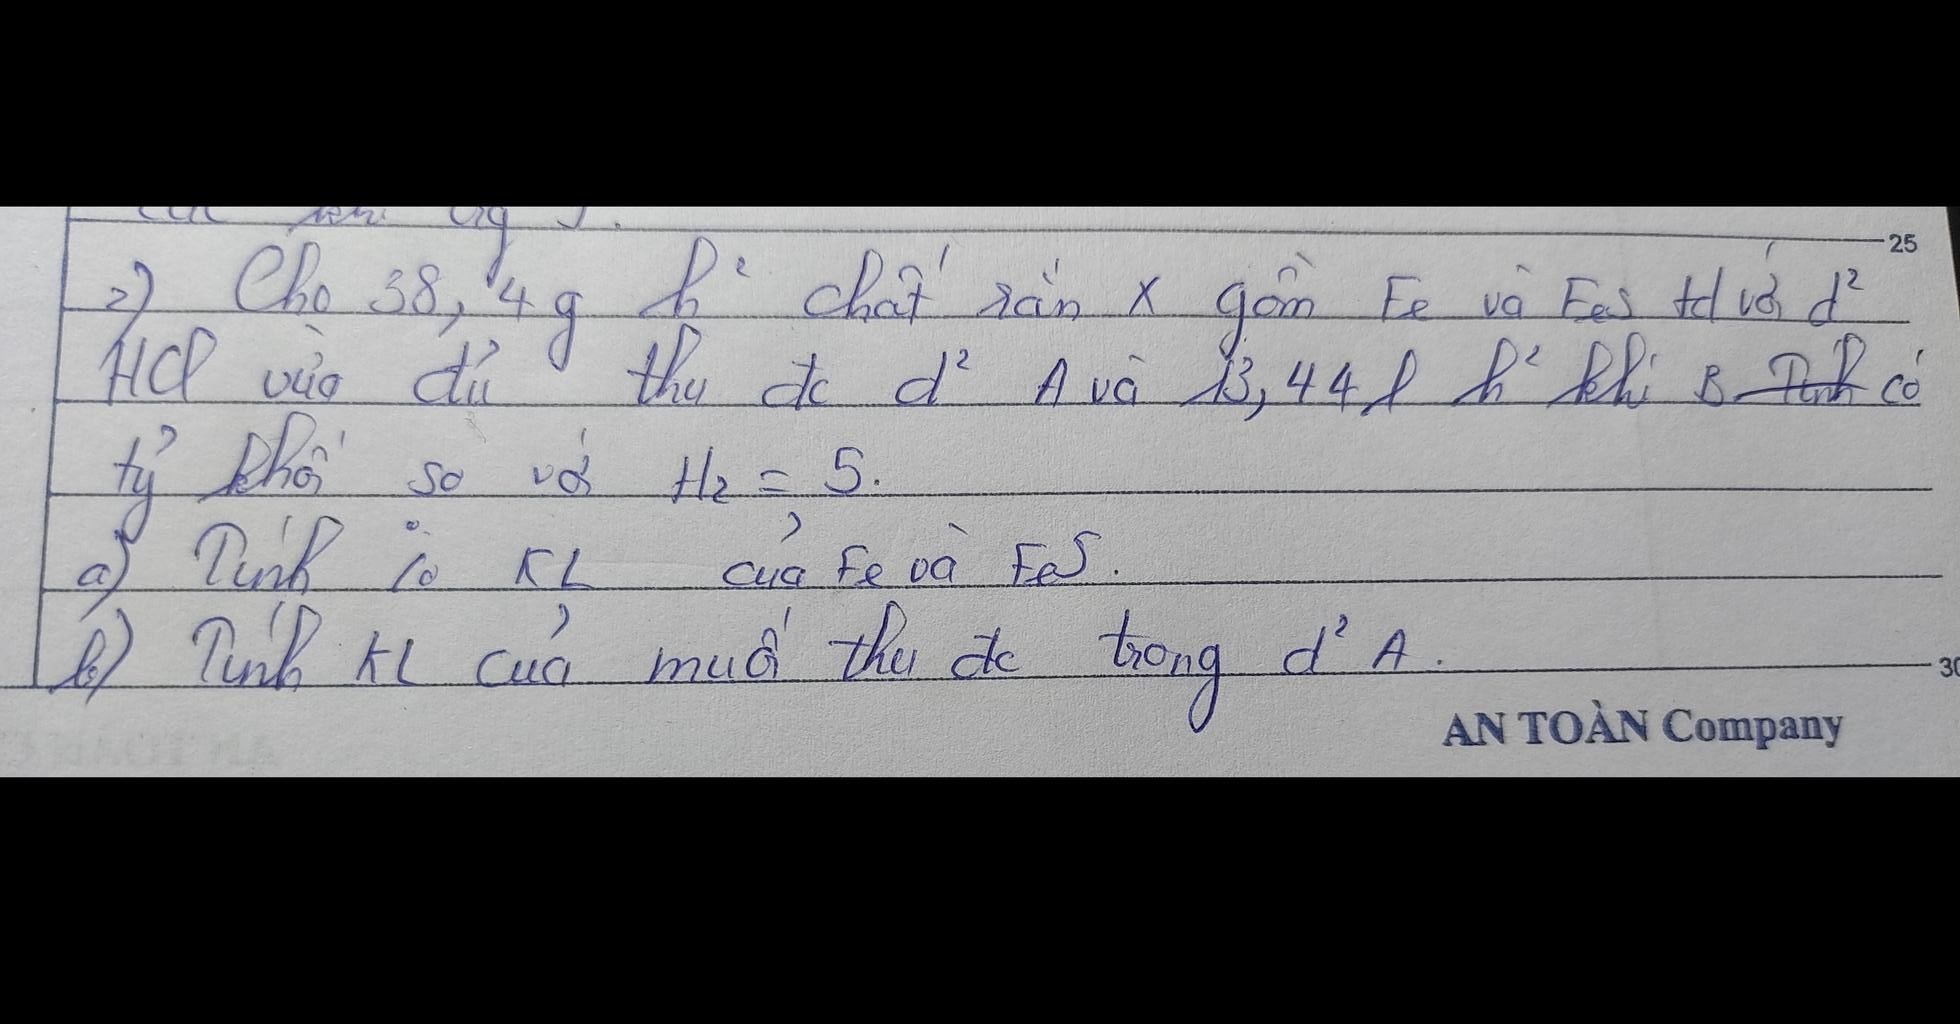 25
2) Cho 38,4g h² chất rắn X gồm Fe và FeS td với d²
HCl vừa đủ thu đc d² A và 13,44 l h² khí B Tính có
tỷ khối so với H₂ = 5.
a) Tính % KL của Fe và FeS.
b) Tính KL của muối thu đc trong d² A.
30
AN TOÀN Company